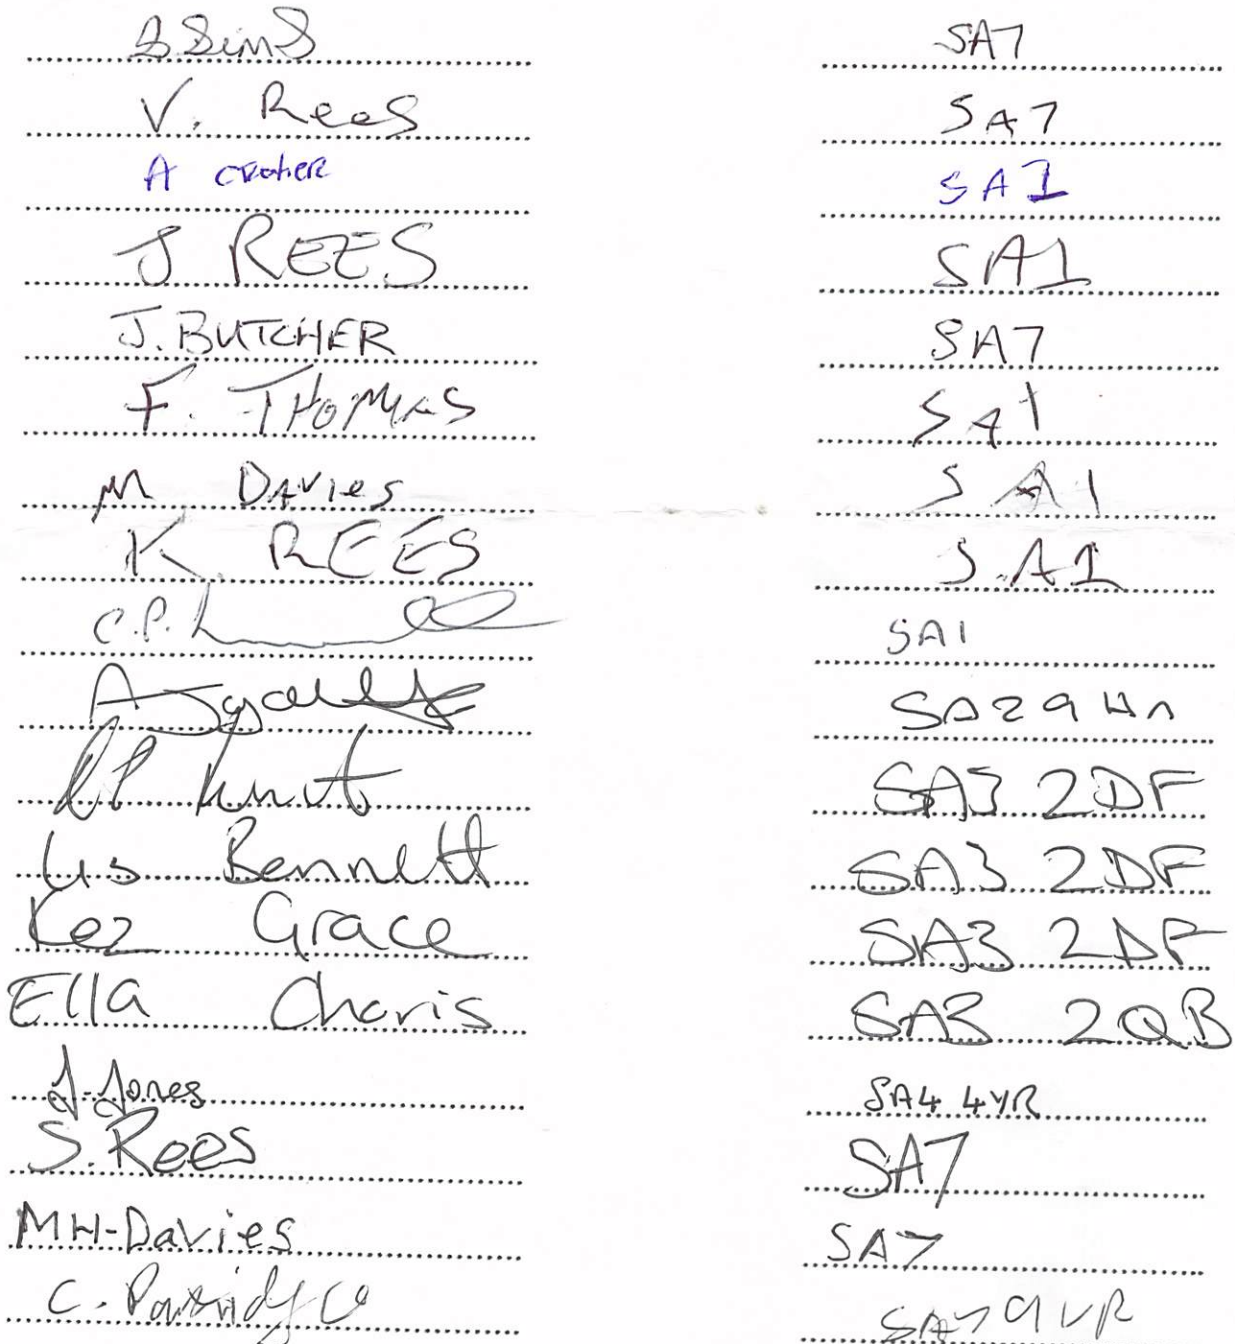 B Sims SA7
V. Rees SA7
A crother SA1
J REES SA1
J. BUTCHER SA7
F. THOMAS SA1
M Davies SA1
K REES S.A1
C.P. SA1
A SA2 9
Kunt SA3 2DF
Lis Bennett SA3 2DF
Kez Grace SA3 2DF
Ella Charis SA3 2QB
J-Jones SA4 4YR
S. Rees SA7
MH-Davies SA7
C. SA7 9